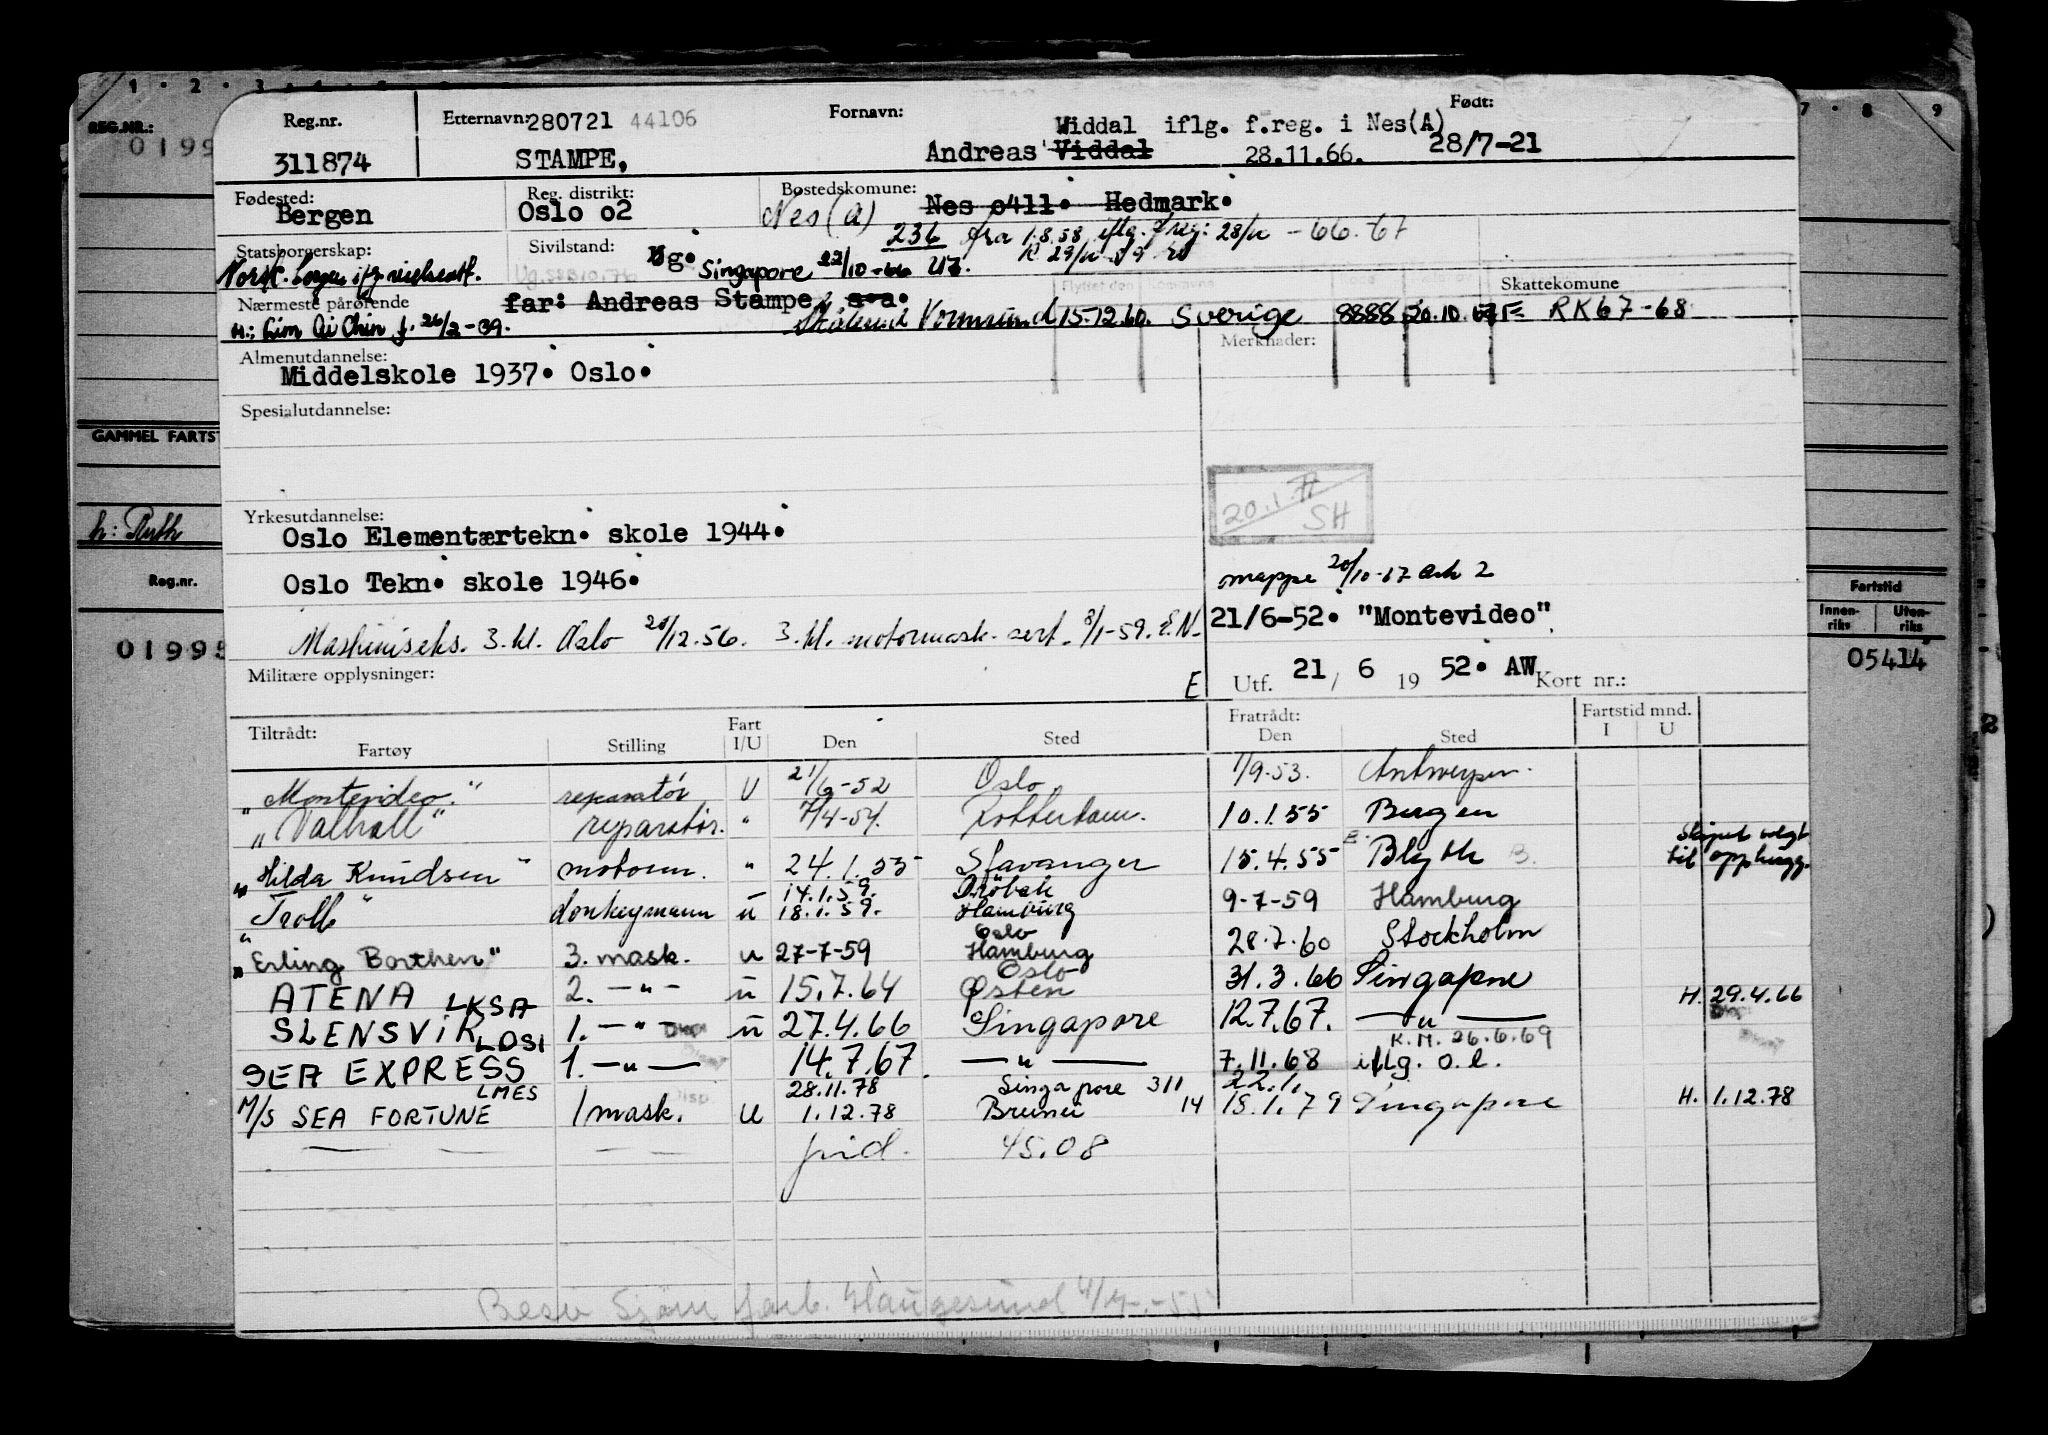 1 · 2 · 3 · 4 · 5 · 6
7 · 8 · 9
REG.NR.:
0199
Reg.nr.
Etternavn: 280721 44106
Fornavn:
Født:
Widdal iflg. f.reg. i Nes(A)
311874
STAMPE,
Andreas Viddal
28.11.66.
28/7-21
Fødested:
Reg. distrikt:
Bostedskomune:
Bergen
Oslo o2
Nes (A)
Nes o411. Hedmark.
236 fra 1.8.58 iflg. freg: 28/11 - 66-67
Statsborgerskap:
Sivilstand:
Ug.
Singapore 22/10-66 Ut.
Nærmeste pårørende
far: Andreas Stampe, s.a.
Skattekomune
H.: Lim Ai Chin f. 26/2-39.
Vormsund 15.12.60. Sverige 8888 20.10.67 E RK67-68
Almenutdannelse:
Merknader:
Middelskole 1937. Oslo.
Spesialutdannelse:
GAMMEL FARTST
20.1.77
SH
Yrkesutdannelse:
h: Ruth
Oslo Elementærtekn. skole 1944.
Reg.nr.
Oslo Tekn. skole 1946.
mappe 20/10-67 ark 2
Fartstid
Innen-
riks
Uten-
riks
21/6-52. "Montevideo"
Maskinisteks. 3. kl. Oslo 20/12.56. 3. kl. motormask. sert. 8/1-59. E.N.
01995
05414
Militære opplysninger:
E
Utf. 21 / 6 19 52. AW Kort nr.:
Tiltrådt:
Fartøy
Stilling
Fart
I/U
Den
Sted
Fratrådt:
Den
Sted
Fartstid mnd.
I U
"Montevideo." reparatør U 21/6-52 Oslo 1/9-53. Antwerpen.
"Valhall" reparatør. " 7/4-54. Rotterdam. 10.1.55 Bergen
Skipet solgt
"Hilda Knudsen" motorm. " 24.1.55 Stavanger 15.4.55 Blyth til opphugg.
14.1.59. Drøbak
"Troll" donkeymann u 18.1.59. Hamburg 9-7-59 Hamburg
Oslo
"Erling Borthen" 3. mask. u 27-7-59 Hamburg 28.7.60 Stockholm
Oslo
ATENA LKSA 2. —"— u 15.7.64 Østen 31.3.66 Singapore H. 29.4.66
SLENSVIK LDSI 1. —"— u 27.4.66 Singapore 12.7.67. —"—
K.M. 26.6.69
SEA EXPRESS 1. —"— 14.7.67. —"— 7.11.68 iflg. o.l.
LMES 28.11.78 Singapore 311 22.1.
M/S SEA FORTUNE 1 mask. U 1.12.78 Brunei 14 15.1.79 Singapore H. 1.12.78
45.08
Haugesund